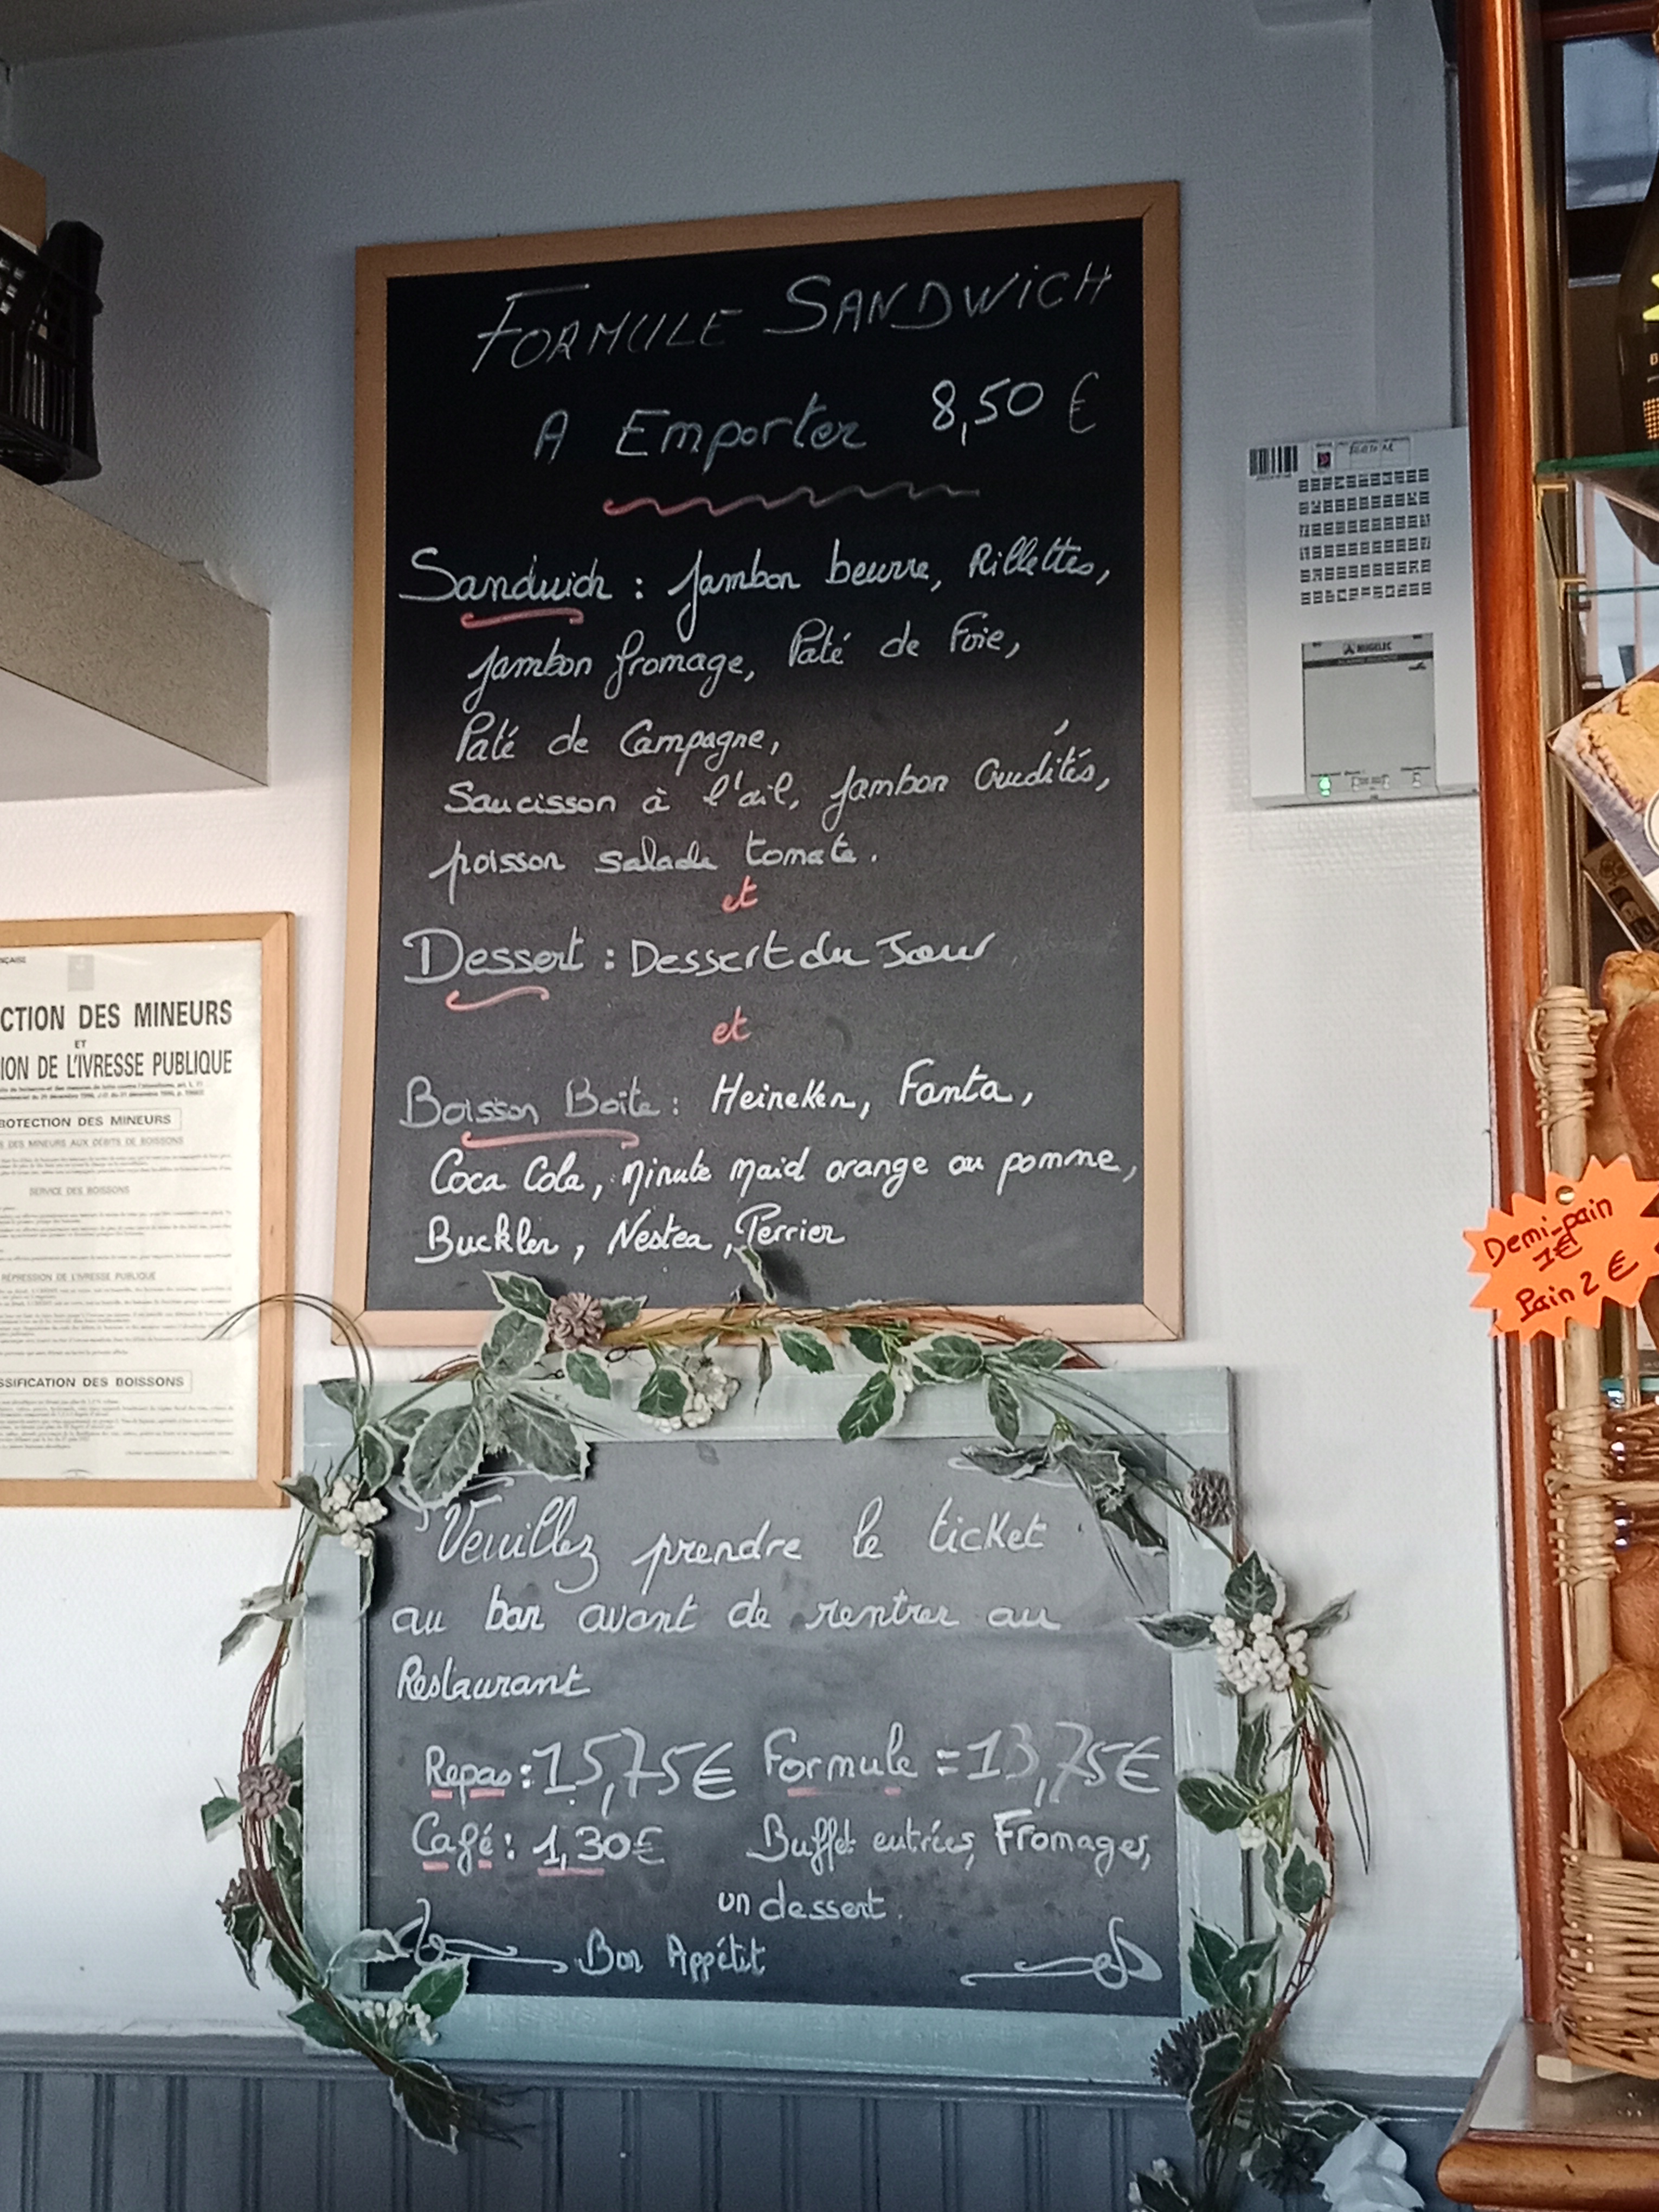 FORMULE SANDWICH
A Emporter 8,50 €
Sandwich : Jambon beurre, Rillettes,
Jambon fromage, Paté de Foie,
Paté de Campagne,
Saucisson à l'ail, Jambon Crudités,
poisson salade tomate.
et
Dessert : Dessert du Jour
et
Boisson Boite : Heineken, Fanta,
Coca Cola, Minute Maid orange ou pomme,
Buckler, Nestea, Perrier
Veuillez prendre le ticket
au bar avant de rentrer au
Restaurant
Repas : 15,75€ Formule = 13,75€
Café : 1,30€ Buffet entrées, Fromages,
un dessert.
Bon Appétit
CTION DES MINEURS
ET
ION DE L'IVRESSE PUBLIQUE
OTECTION DES MINEURS
DES MINEURS AUX DÉBITS DE BOISSONS
SERVICE DES BOISSONS
RÉPRESSION DE L'IVRESSE PUBLIQUE
SSIFICATION DES BOISSONS
NUGELEC
Demi-pain
1€
Pain 2 €